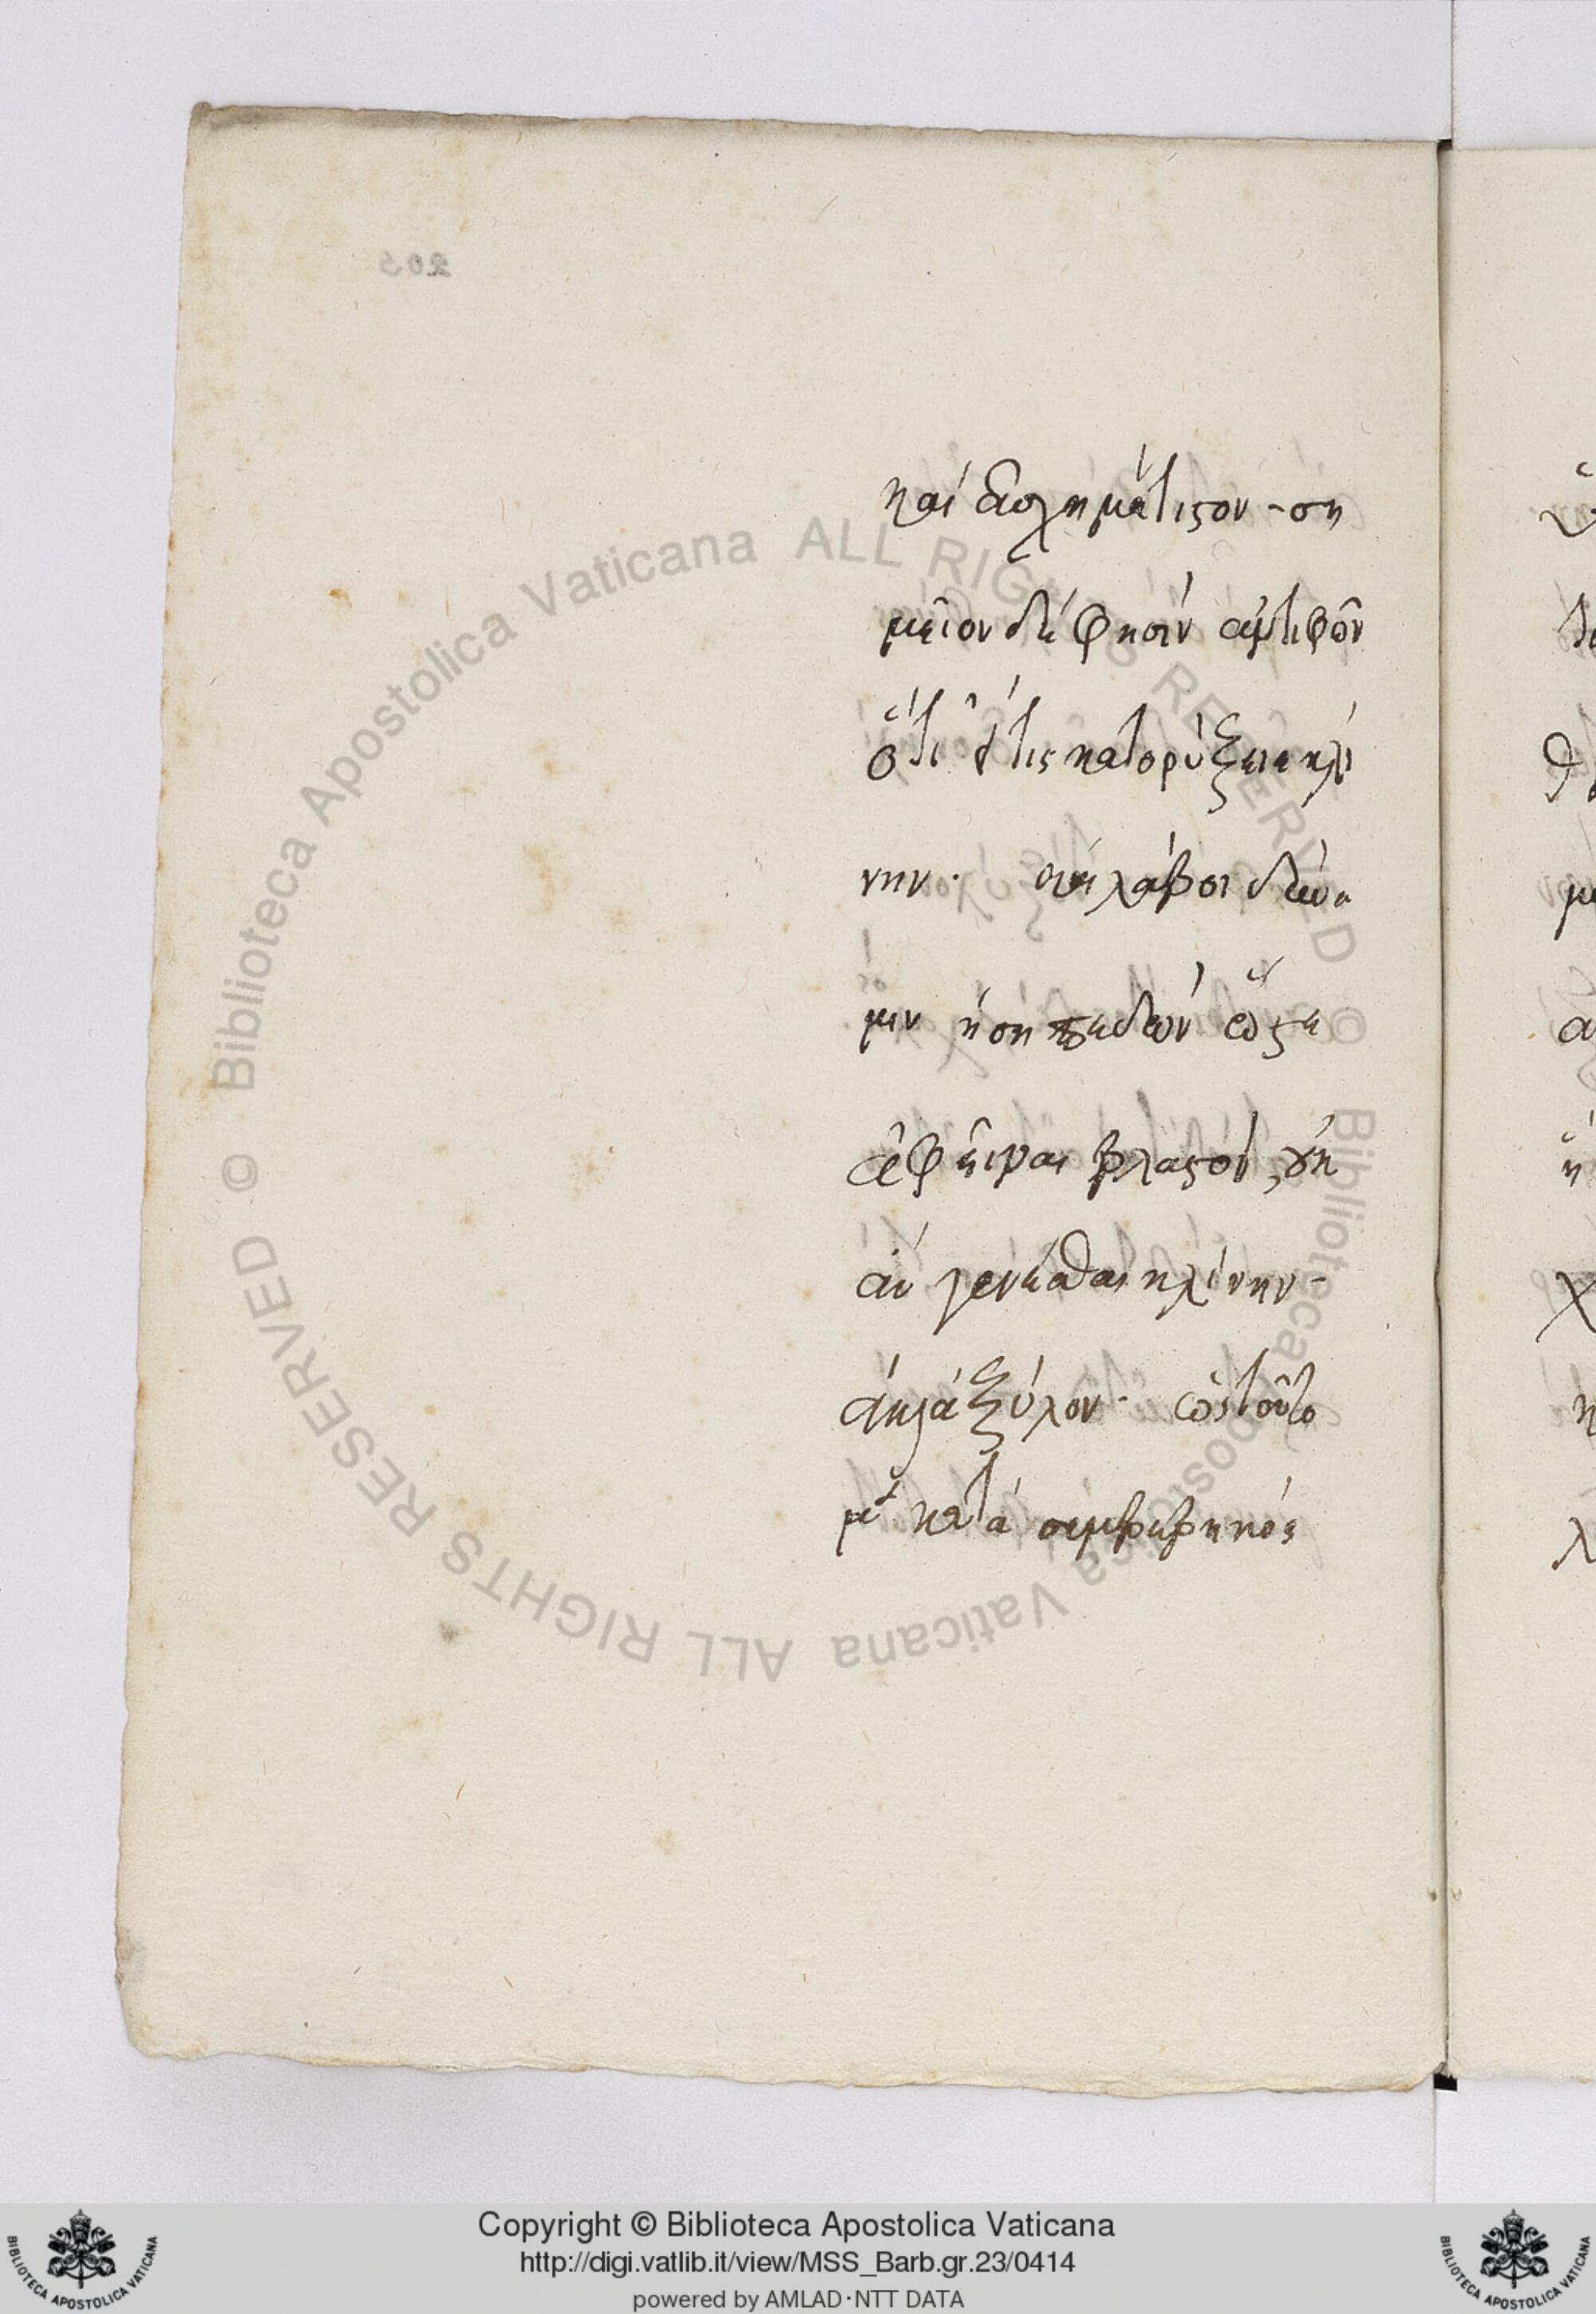 205
καὶ ἀσχημάτιστον - ση
μεῖον δέ φησὶν ἀντιφῶν
ὅτι εἴ τις κατορύξειε κλί
νην · καὶ λάβοι δύνα
μιν ἡ σηπεδὼν ὥστε
ἀφεῖναι βλαστὸν, οὐκ
ἂν γενέσθαι κλίνην -
ἀλλὰ ξύλον · ὡς τοῦτο
μὲν κατὰ συμβεβηκὸς
Biblioteca Apostolica Vaticana ALL RIGHTS RESERVED ©
Biblioteca Apostolica Vaticana ALL RIGHTS RESERVED ©
Copyright © Biblioteca Apostolica Vaticana
http://digi.vatlib.it/view/MSS_Barb.gr.23/0414
powered by AMLAD·NTT DATA
BIBLIOTECA APOSTOLICA VATICANA
BIBLIOTECA APOSTOLICA VATICANA